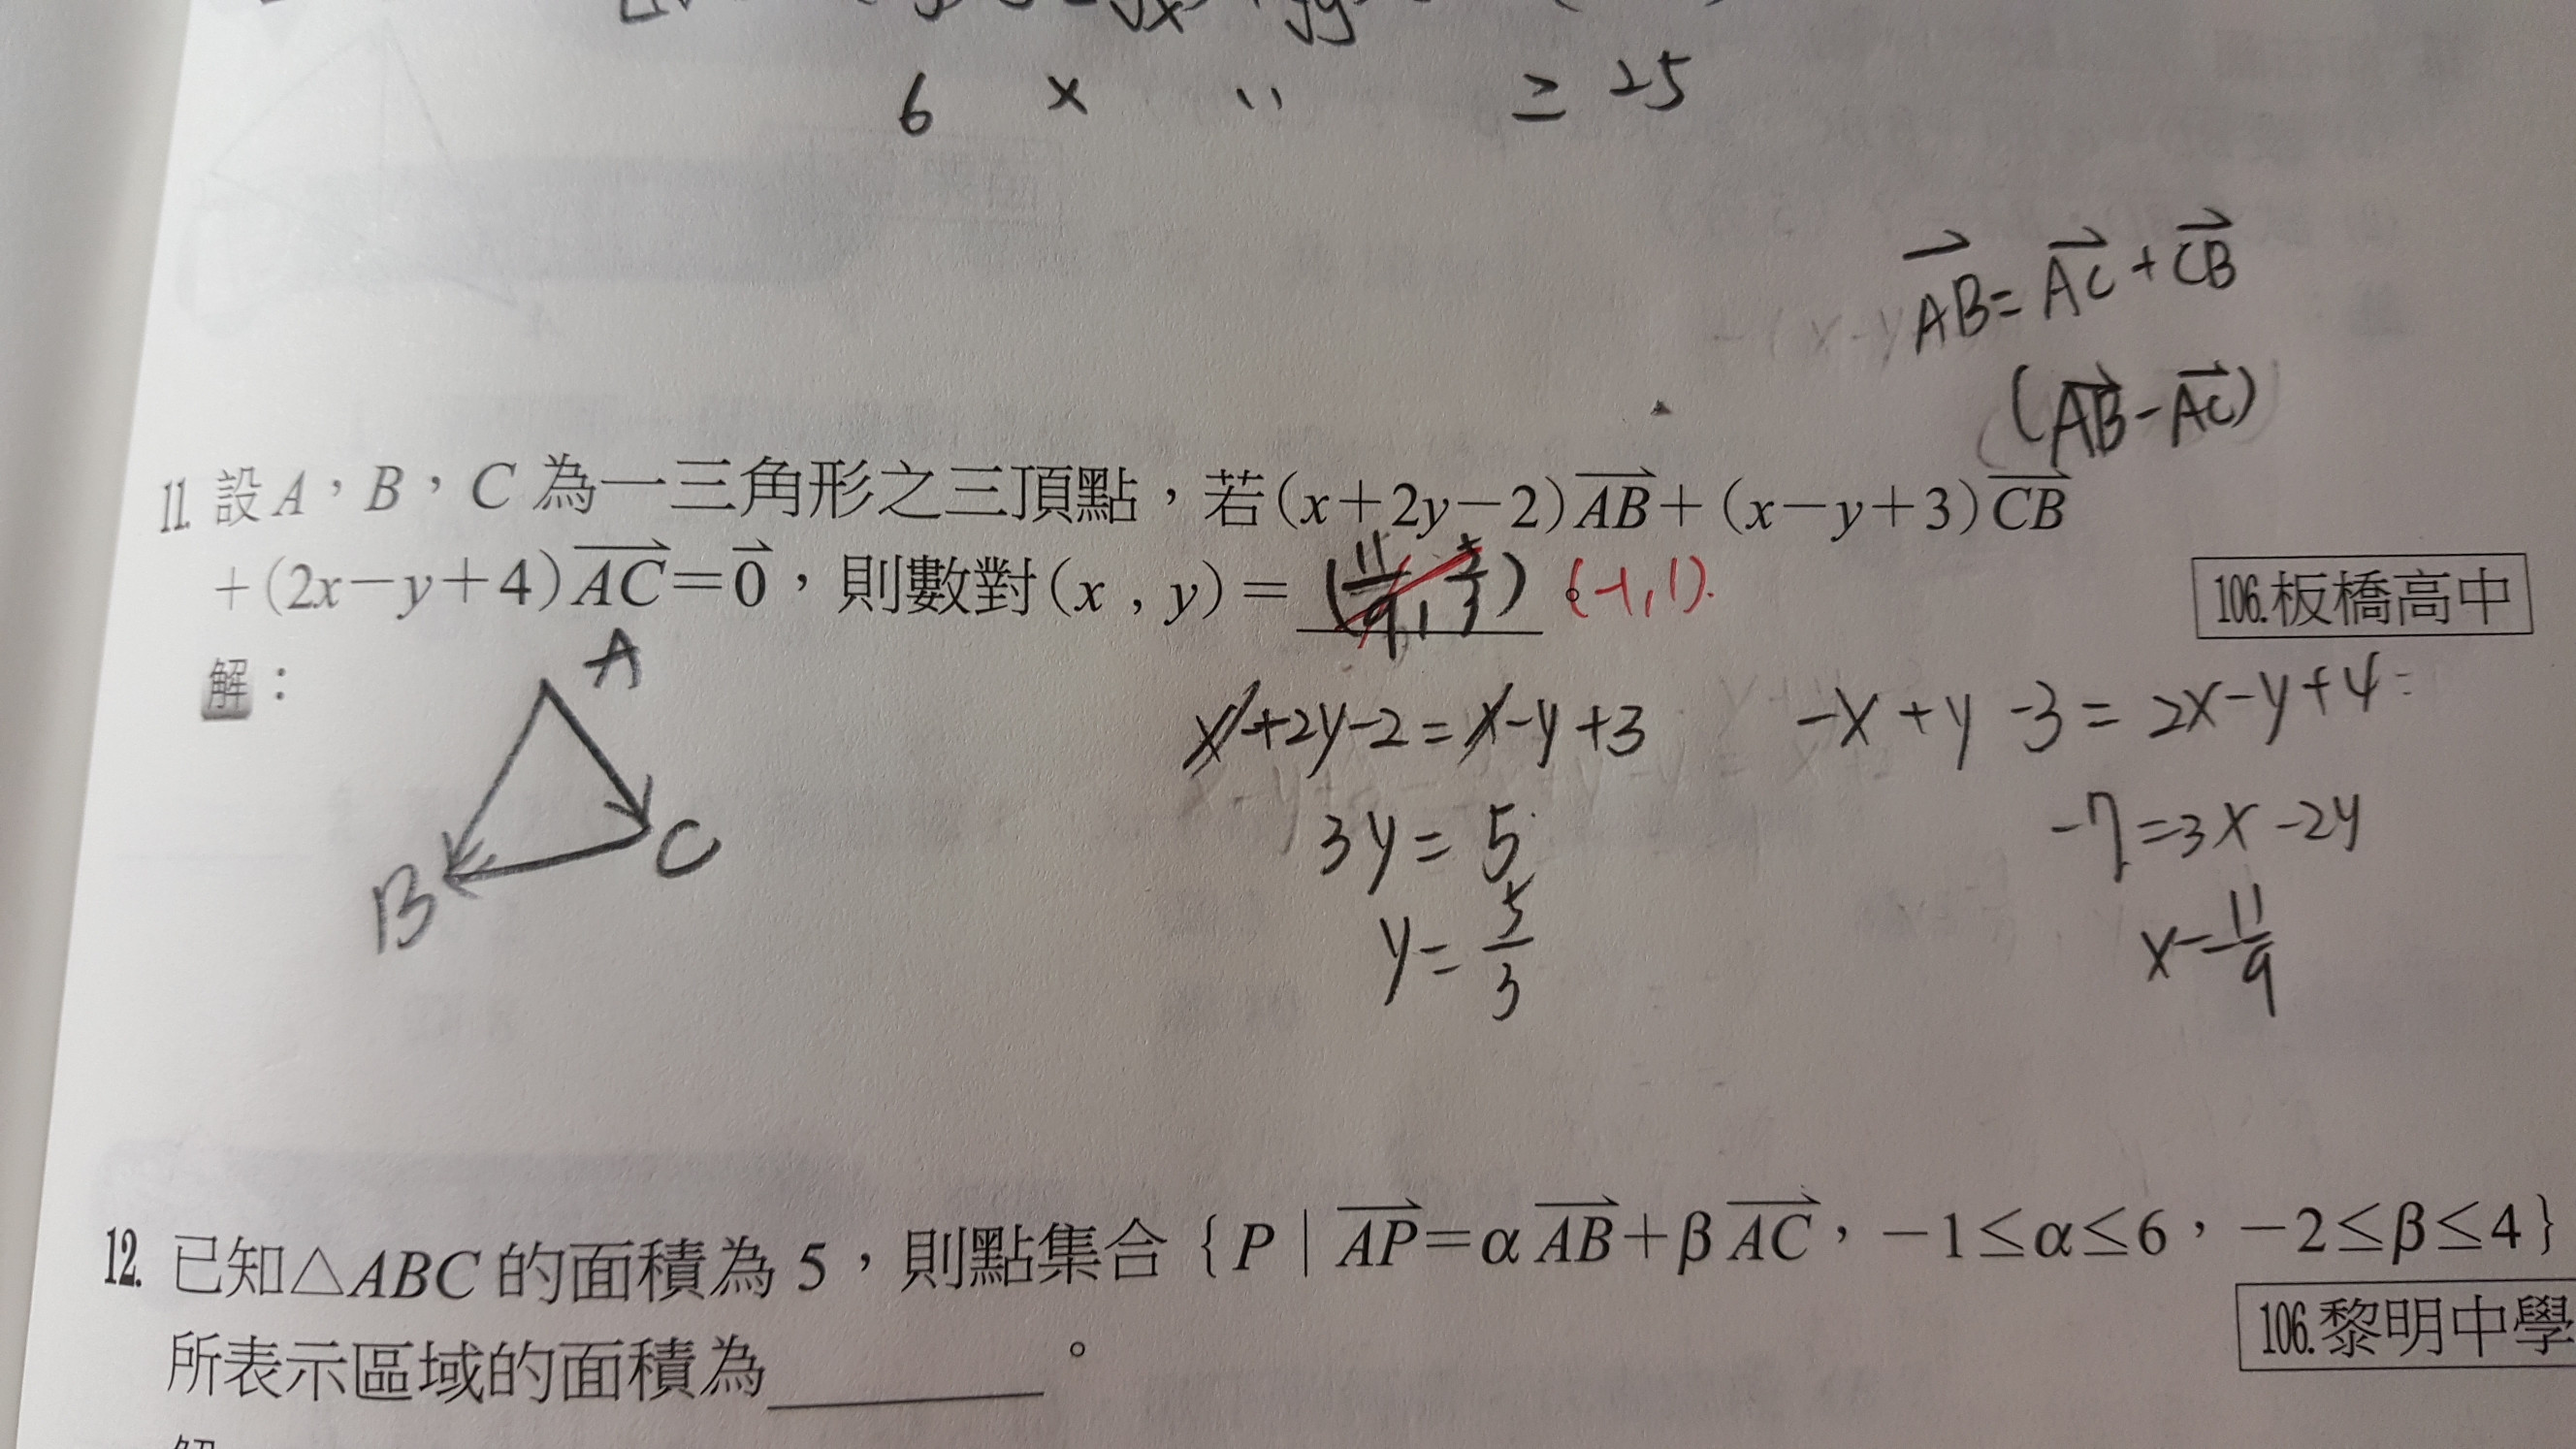 6 × 〃 ≥ 25
AB = AC + CB
(AB - AC)
11. 設A,B,C 為一三角形之三頂點,若(x+2y-2)AB+(x-y+3)CB
+(2x-y+4)AC=0,則數對(x , y)= (11/9, 5/3)。(-1,1).
106.板橋高中
解:
A
B
C
x+2y-2 = x-y+3
3y = 5
y = 5/3
-x+y-3 = 2x-y+4
-7 = 3x-2y
x = -11/9
12. 已知△ABC 的面積為 5,則點集合 { P | AP=αAB+βAC,-1≤α≤6,-2≤β≤4 }
所表示區域的面積為________。
106.黎明中學